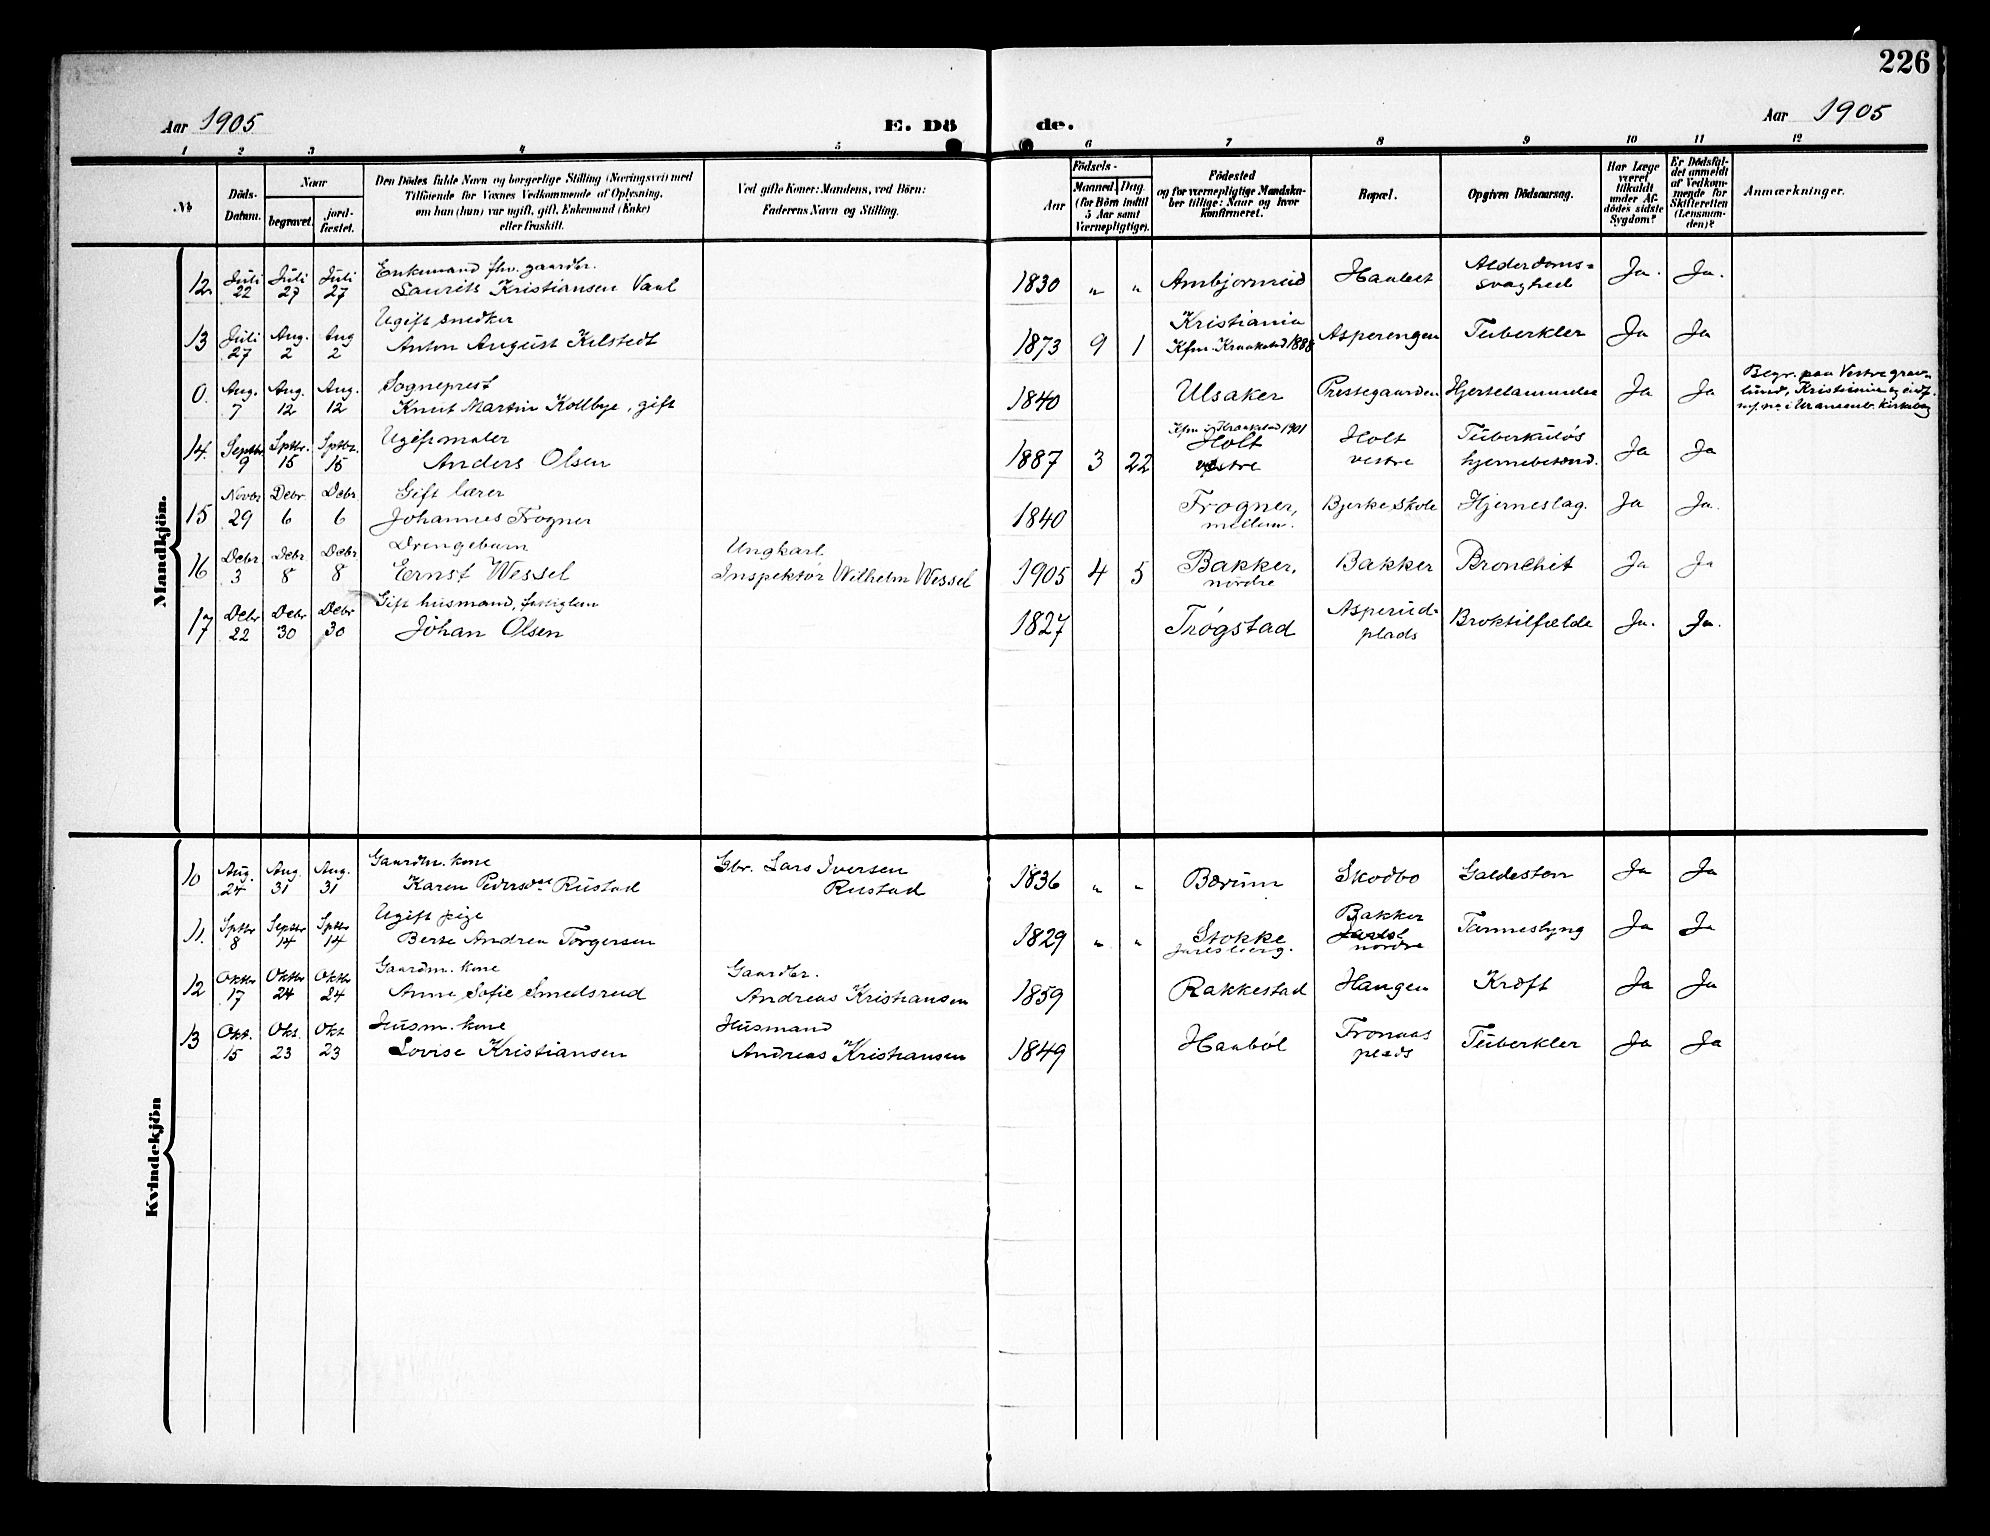 226
Aar 1905
E. Dö
de.
Aar 1905
1 2 3 4 5 6 7 8 9 10 11 12
No
Döds-Datum.
Naar
begravet.
jord-fæstet.
Den Dödes fulde Navn og borgerlige Stilling (Næringsvei) med
Tilföiende for Voxnes Vedkommende af Oplysning,
om han (hun) var ugift, gift, Enkemand (Enke)
eller fraskilt.
Ved gifte Koner: Mandens, ved Börn:
Faderens Navn og Stilling.
Födsels-
Aar
Maaned. Dag.
(for Börn indtil
5 Aar samt
Værnepligtige).
Födested
og for værnepligtige Mandska-
ber tillige: Naar og hvor
konfirmeret.
Bopæl.
Opgiven Dödsaarsag.
Har Læge
været
tilkaldt
under Af-
dödes sidste
Sygdom?
Er Dödsfal-
det anmeldt
af Vedkom-
mende for
Skifteretten
(Lensman-
den)?
Anmærkninger.
Mandkjön.
12. Juli 22 Juli 27 Juli 27 Enkemand fhv. gaardbr.
Laurits Kristiansen Vaul 1830 " " Ambjørnrud Haabet Alderdoms-
svaghed Ja. Ja.
13 Juli 27 Aug. 2 Aug 2 Ugift snedker
Anton August Kilstedt 1873 9 1 Kristiania
Kfm. Kraakstad 1888 Asperengen Tuberkler Ja Ja
0. Aug. 7 Aug. 12 Aug. 12 Sogneprest
Knut Martin Kolbye, gift 1840 Ulsaker Prestegaarden Hjertelammelse Ja Ja Begr. paa Vestre grav-
lund, Kristiania
14. Septbr 9 Sptbr. 15 Sptbr. 15 Ugift maler
Anders Olsen 1887 3 22 Kfm i Kraakstad 1901
Holt
vestre Holt
vestre Tuberkuløs
hjernebetænd. Ja Ja
15 Novbr 29 Debr. 6 Debr 6 Gift lærer
Johannes Frogner 1840 Frogner,
mellem. Bjerke skole Hjerneslag. Ja Ja.
16 Debr 3 Debr 8 Debr 8 Drengebarn
Ernst Wessel Ungkarl.
Inspektør Wilhelm Wessel 1905 4 5 Bakker,
nordre Bakker Bronchit Ja Ja
17 Debr 22 Debr 30 Debr 30 Gift husmand, fattiglem
Johan Olsen 1827 Trøgstad Asperud-
plads Broktilfælde Ja. Ja.
Kvindekjön
10 Aug. 24 Aug 31 Aug. 31 Gaardm. kone
Karen Pedersdat Rustad Gbr. Lars Iversen
Rustad 1836 " " Bærum Skodbo Galdesten Ja Ja
11. Sptbr 8 Septbr 14 Sptbr 14 Ugift pige
Berte Andrea Torgersen 1829 " " Stokke
Jarlsberg. Bakker
nordre Tarmeslyng Ja Ja
12 Oktbr 17 Oktbr 24 Oktbr 24 Gaardm. kone
Anne Sofie Smedsrud Gaardbr.
Andreas Kristiansen 1859 Rakkestad Haugen Kræft Ja Ja
13 Okt. 15 Okt. 23 Okt 23 Husm. kone
Lovise Kristiansen Husmand
Andreas Kristiansen 1849 Haabøl Fronaas
plads Tuberkler Ja Ja